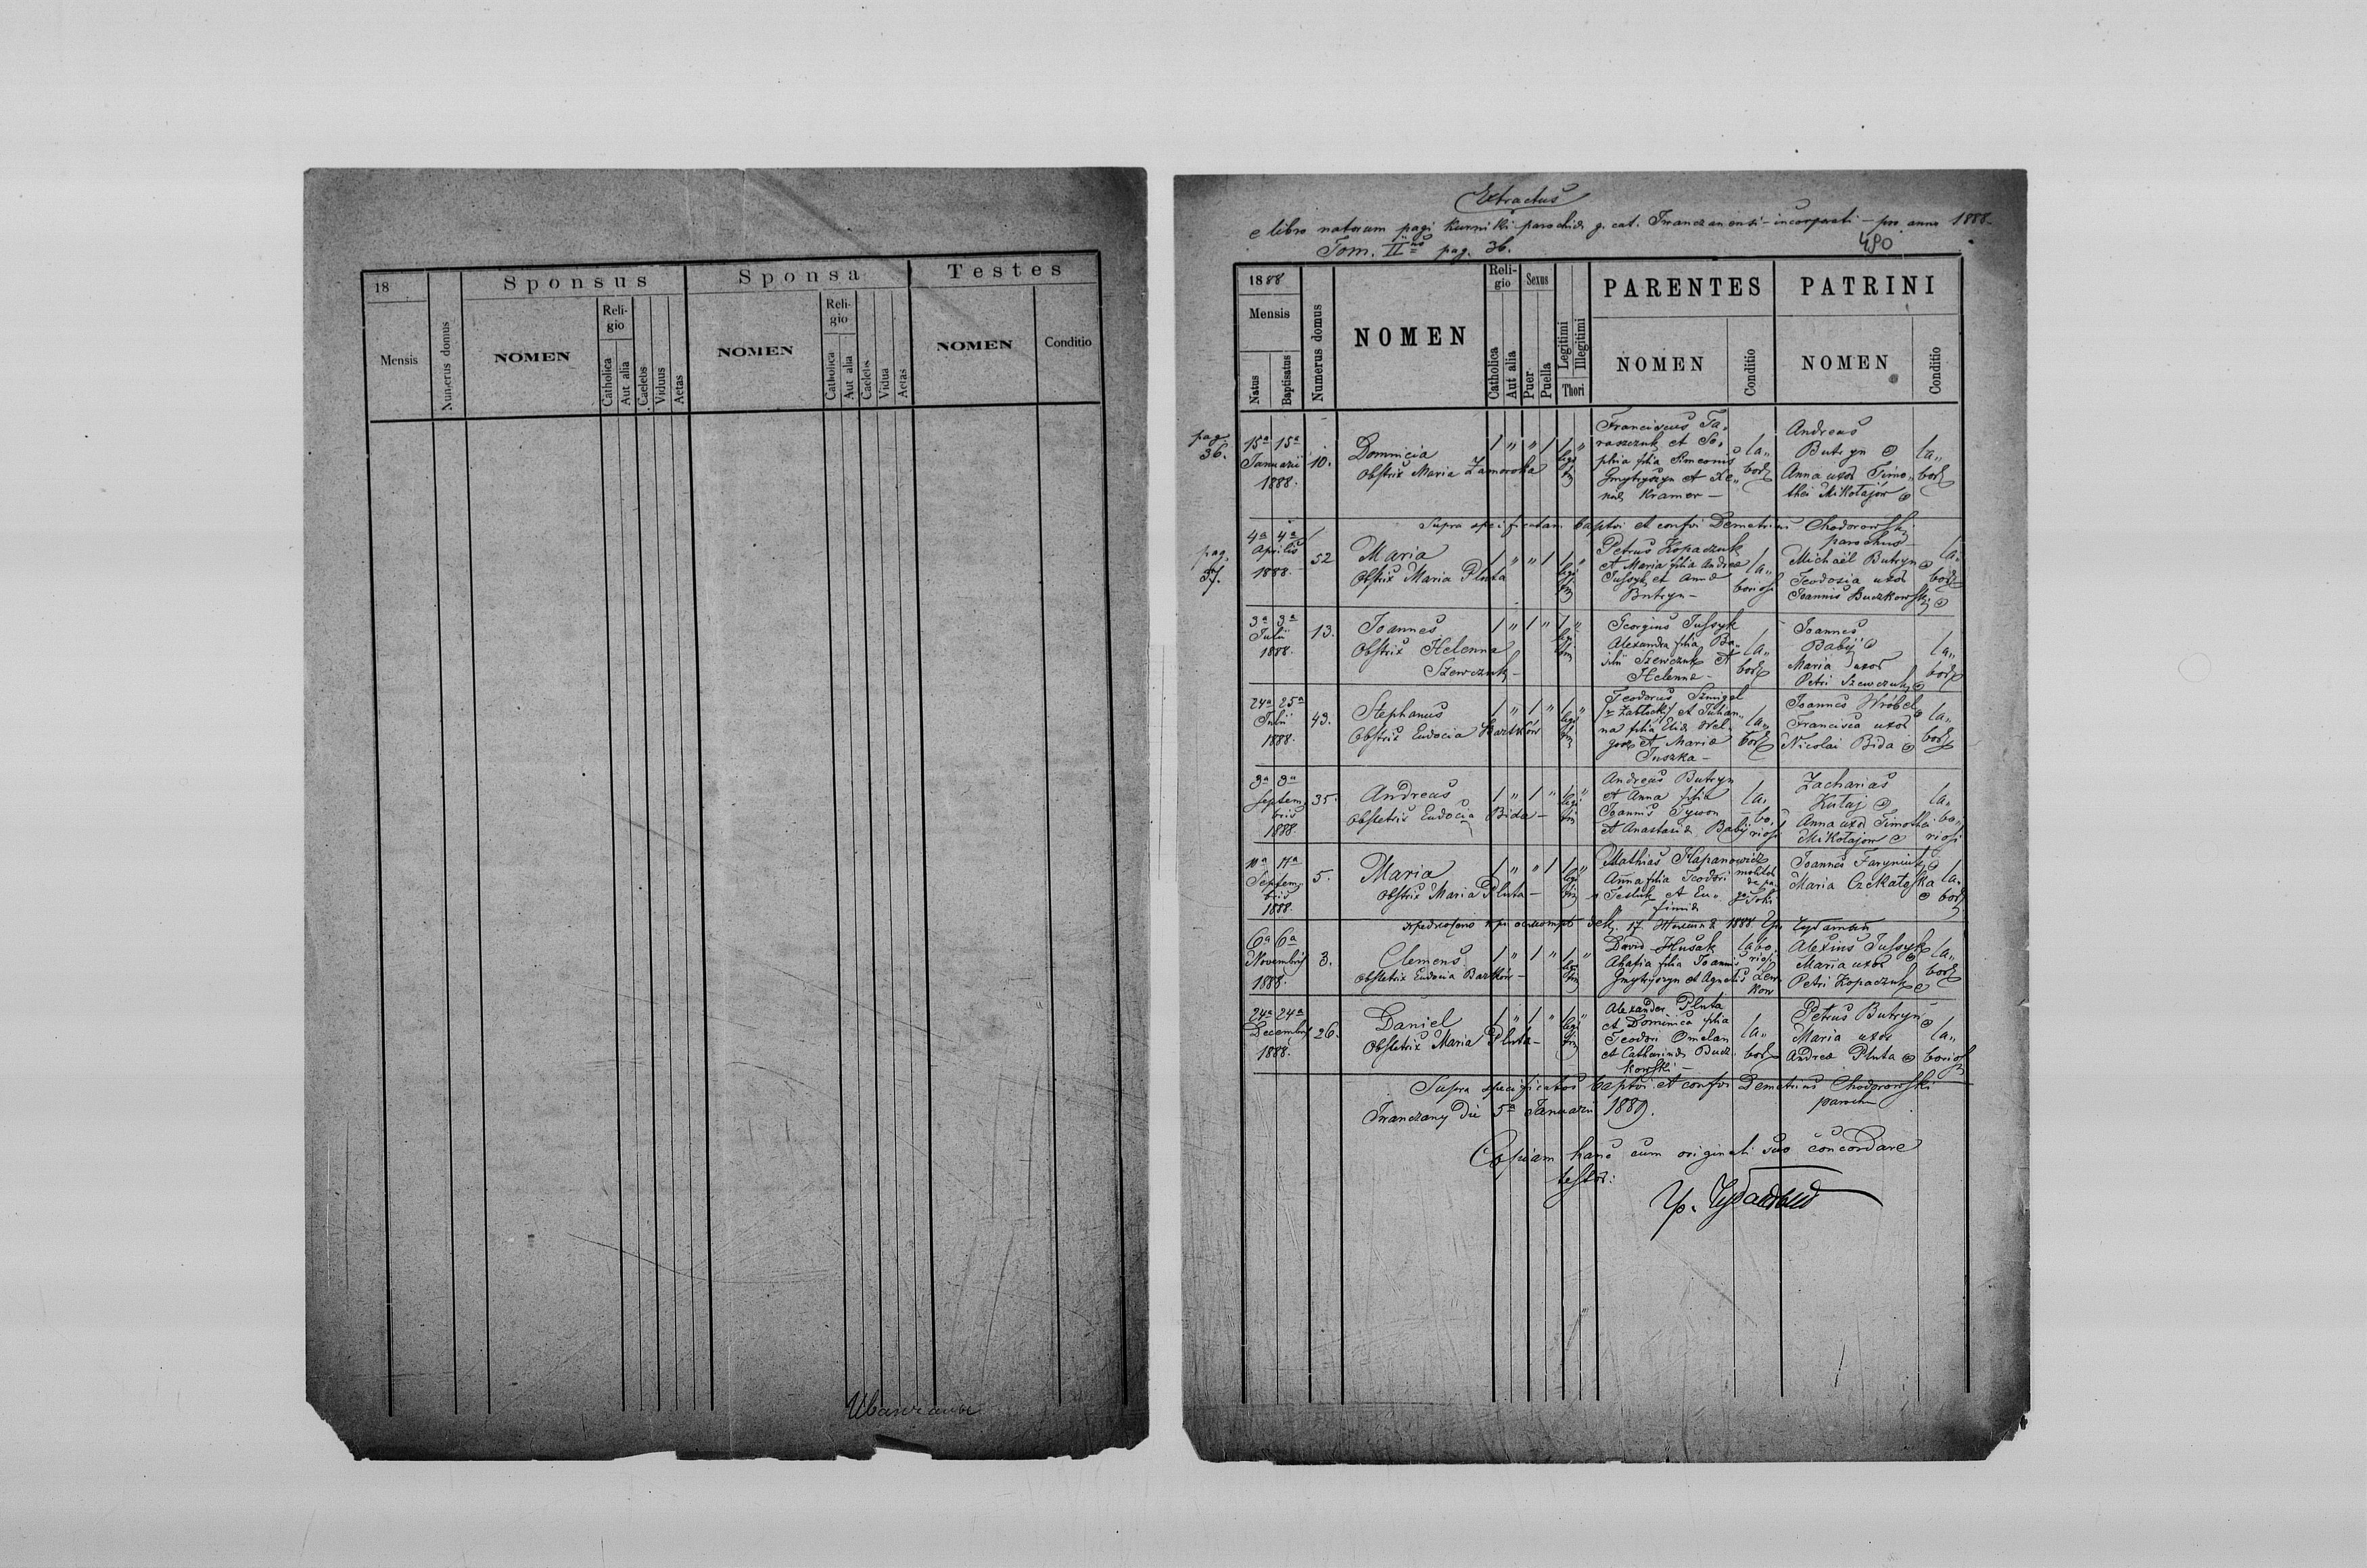 18
Mensis
Numerus domus
Sponsus
NOMEN
Reli-
gio
Catholica
Aut alia
Caelebs
Viduus
Aetas
Sponsa
NOMEN
Reli-
gio
Catholica
Aut alia
Caelebs
Vidua
Aetas
Testes
NOMEN
Conditio
Extractus
e libro natorum pagi Kurniki parochiæ g. cat. Iwanczanensi incorporati pro anno 1888
Tom. II pag. 36.
490
1888
Mensis
Natus
Baptisatus
Numerus domus
NOMEN
Reli-
gio
Catholica
Aut alia
Sexus
Puer
Puella
Legitimi
Illegitimi
Thori
PARENTES
NOMEN
Conditio
PATRINI
NOMEN
Conditio
pag.
36.
15a 15a
Januarii
1888.
10.
Dominicia
Obstrix Maria Zamorska
1 " " 1 1 "
Franciscus Ta-
raszczuk et So-
phia filia Simeonis
Gmytryszyn et
Kramer
la"
Andreas
Butryn
Anna uxor Timo-
thei Mikołajów
la"
Supra specificatam baptsi et confsi Demetrius Chodorowski
parochus
pag.
37.
4a 4a
Aprilis
1888.
52
Maria
Obstrix Maria Pluta
1 " " 1 1 "
Petrus Kopaczuk
et Maria filia Andreæ
Jussyk et Anna
Butryn
la"
boriosi
Michaël Butryn
Teodosia uxor
Joannis Buczkowski
la"
3a 3a
Julii
1888.
13.
Joannes
Obstrix Helenna
Szewczuk
1 " 1 " 1 "
Georgius Jussyk
Alexandra filia Ba-
silii Szewczuk et
Helenna
la"
Joannes
Babij
Maria uxor
Petri Szewczuk
la"
24a 25a
Julii
1888.
43.
Stephanus
Obstrix Eudocia Bartków
1 " 1 " 1 "
Teodorus Szmigel
Zabłocki et Julian-
na filia Eliæ
et Maria
Juszka
la"
Joannes Wróbel
Francisca uxor
Nicolai Bida
la"
3a 3a
Septem
bris
1888
35.
Andreas
Obstetrix Eudocia Bida
1 " 1 " "
Andreas Butryn
et Anna filia
Joannis Tywon
et Anastasia Babij
la"
bo"
riosi
Zacharias
Kutaj
Anna uxor Timothei
Mikołajow
la"
bo"
riosi
17a
Septem
bris
1888.
5.
Maria
Obstrix Maria Pluta
1 " " 1 1 "
Mathias
Anna filia Teodori
Tesluk et Eu-
fimia
Joannes Faryniuk
Maria Czekalska
la"
17. 1888.
6a 6a
Novembris
1888.
3.
Clemens
Obstetrix Eudocia Bartków
1 " 1 " 1 "
David Husak
Ahafia filia Joannis
Gmytryszyn et Agnetis Lew
kow
labo
riosi
Alexius Jussyk
Maria uxor
Petri Kopaczuk
la"
24a 24a
Decembris
1888.
26.
Daniel
Obstetrix Maria Pluta
1 " 1 " 1 "
Alexander Pluta
et Dominica filia
Teodori Omelan
et Catharinæ Bucz-
kowski
la"
Petrus Butryn
Maria uxor
Andreæ Pluta
la"
Supra specificatos baptsi et confsi Demetrius Chodorowski
paroch
Iwanczany die 5a Januarii 1889.
Copiam hanc cum originali suo concordare
testor: